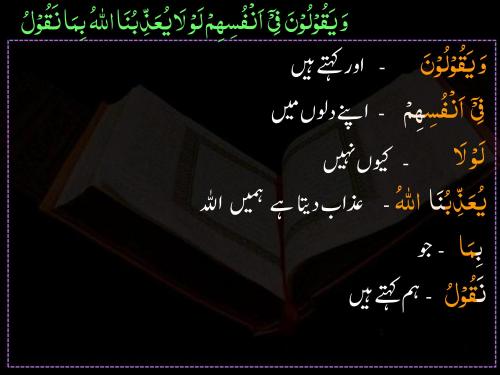 وَيَقُوْلُوْنَ فِيْۤ اَنْفُسِهِمْ لَوْلَا يُعَذِّبُنَا اللّٰهُ بِمَا نَقُوْلُ
وَيَقُوْلُوْنَ - اور کہتے ہیں
فِيْۤ اَنْفُسِهِمْ - اپنے دلوں میں
لَوْلَا - کیوں نہیں
يُعَذِّبُنَا اللّٰهُ - عذاب دیتا ہے ہمیں اللہ
بِمَا - جو
نَقُوْلُ - ہم کہتے ہیں